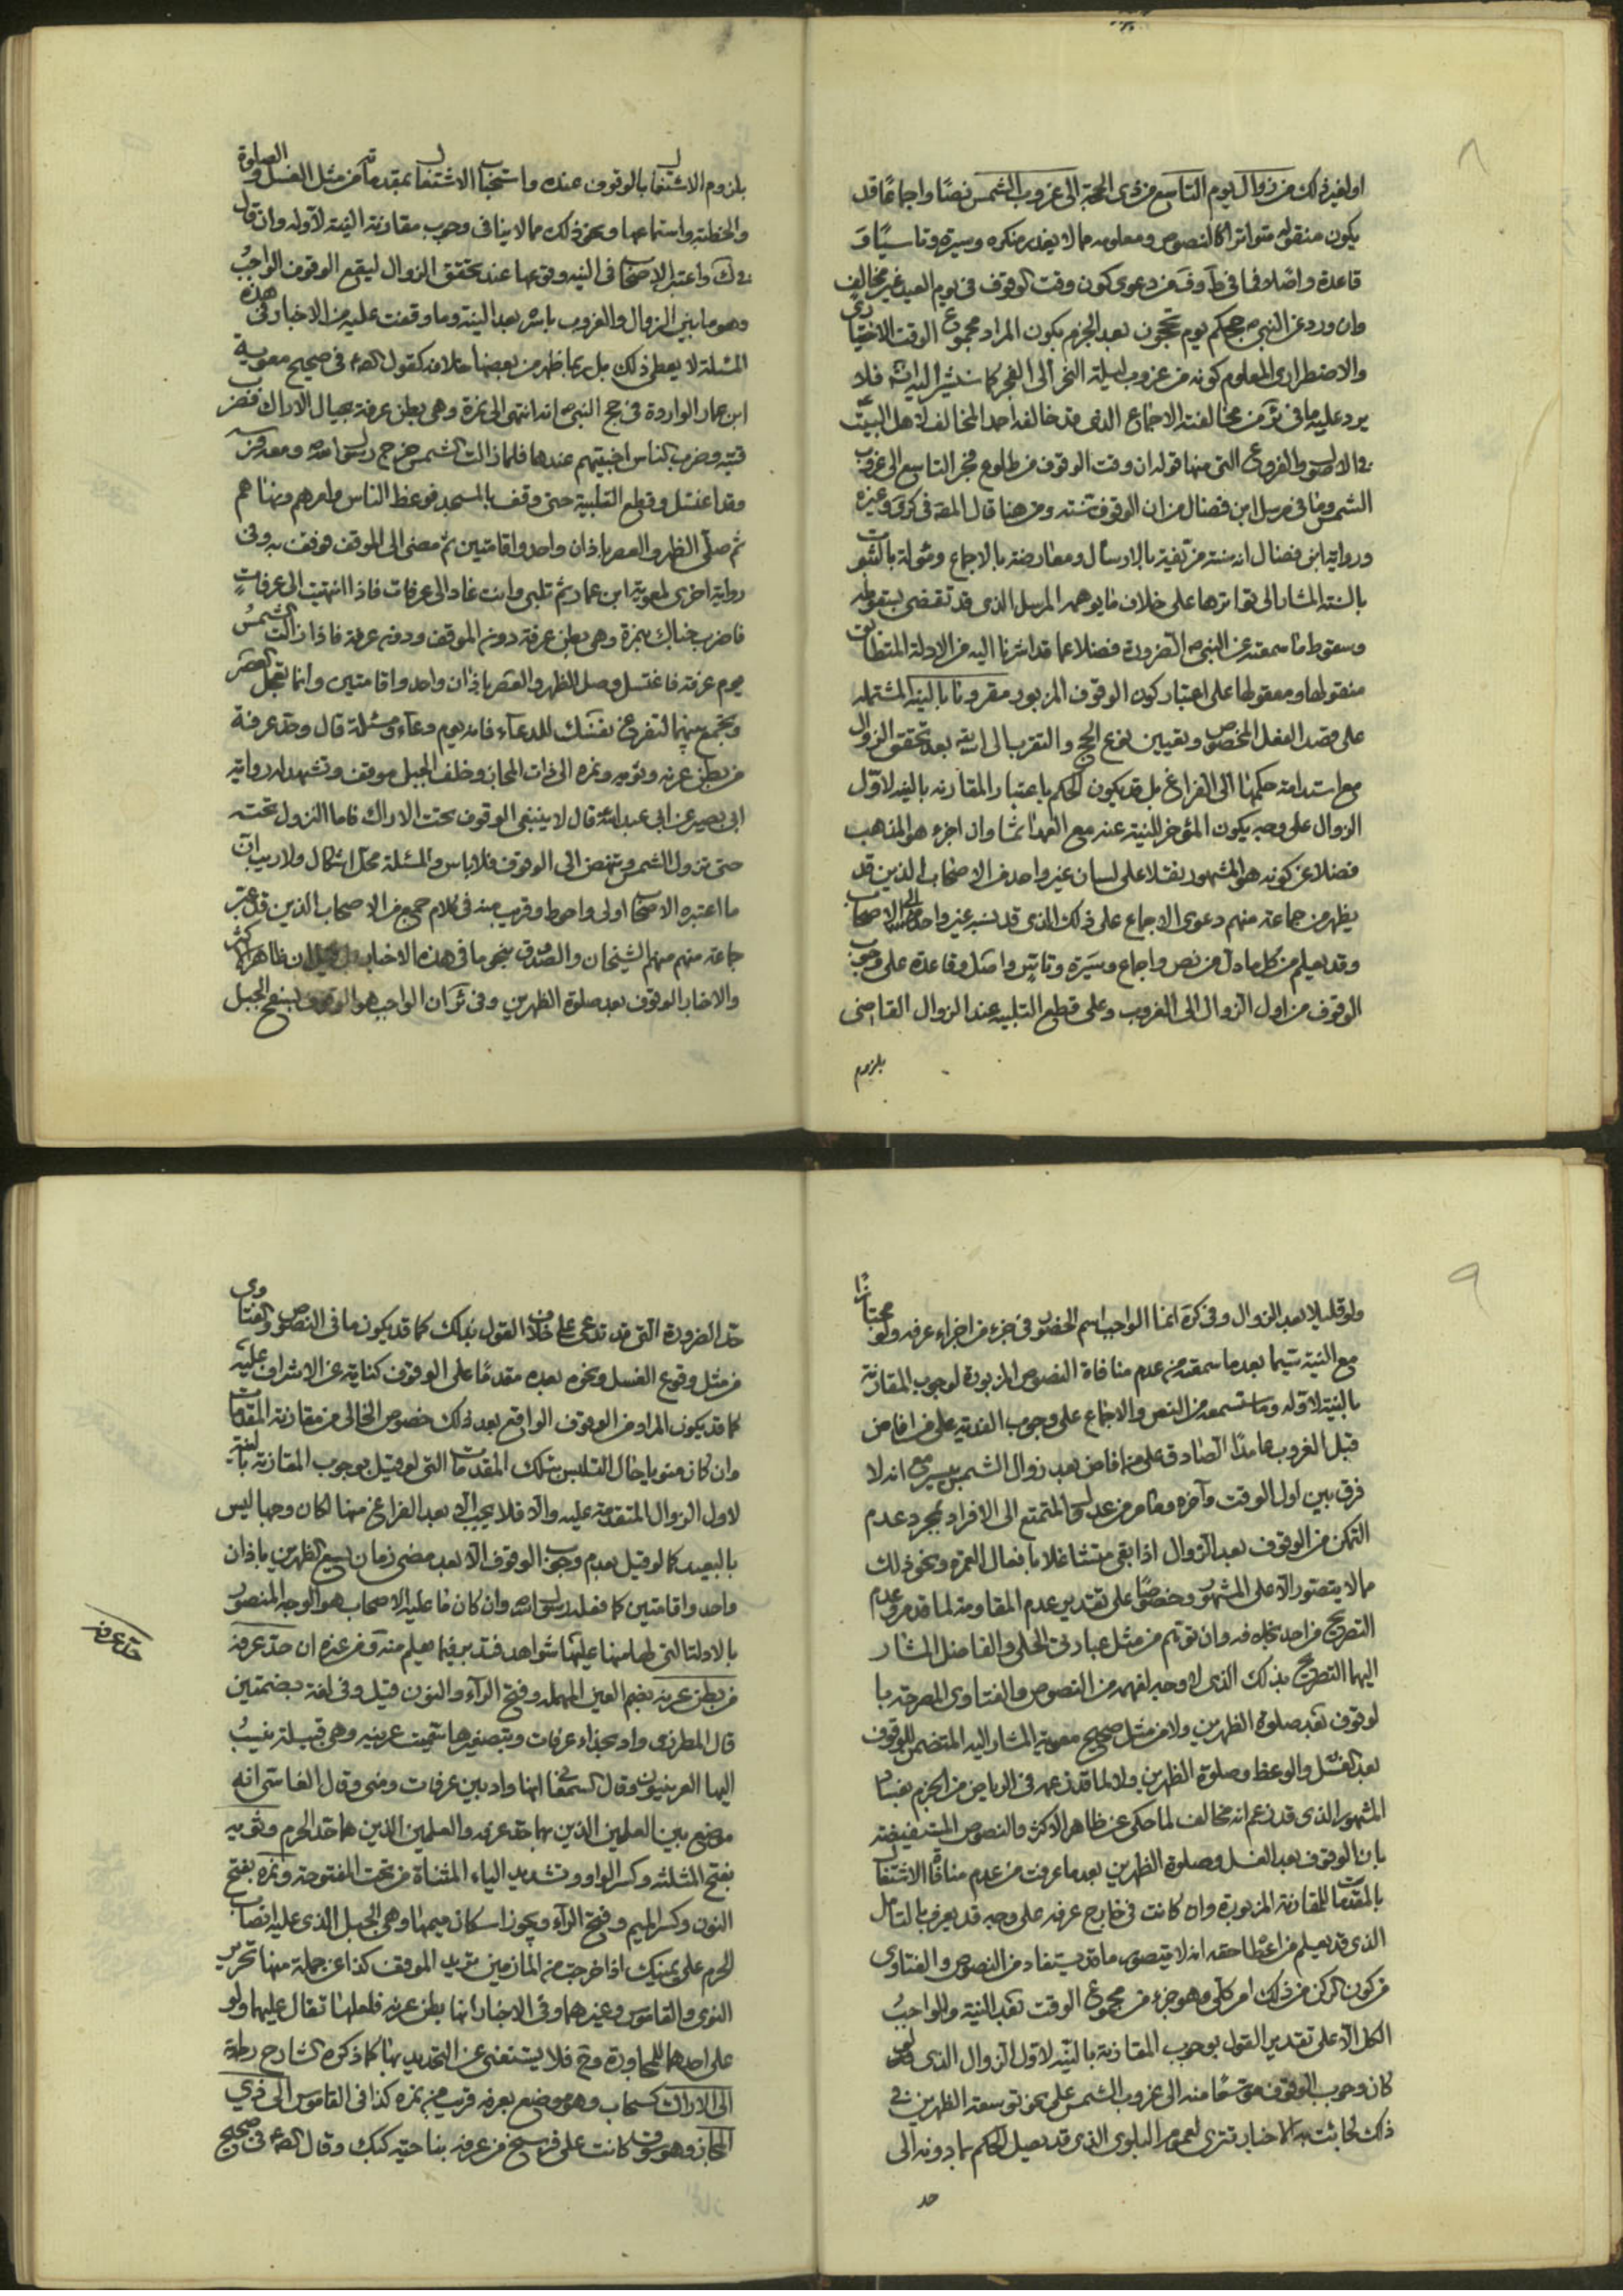 ٨
او لغير ذلك من زوال يوم التاسع من ذى الحجة الى غروب الشمس نصًا واجماعًا قد
يكون منقوله متواترا كالنصوص ومعلومه مما لا يعذر منكره وسيرة وتاسيًا و
قاعدة واصلا فما فى من دعوى كون وقت الوقوف فى يوم العيد غير مخالف
وان ورد عن النبى ص حجكم يوم تحجون بعد الجزم بكون المراد مجموع الوقت الاختيارى
والاضطرارى المعلوم كونه من غروب ليلة النحر الى الفجر كما سنشير اليه فلا
يرد عليه ما فى من مخالفته الاجماع الذى قد خالفه احمد المخالف لاهل البيت ع
فى الاصول والفروع التى منها قوله ان وقت الوقوف من طلوع فجر التاسع الى غروب
الشمس وما فى مرسل ابن فضال من ان الوقوف سنة ومن هنا قال فى وغيره
ورواية ابن فضال انه سنة مزيفة بالارسال ومعارضة بالاجماع ومأولة بالثبوت
بالسنة المشار الى تواترها على خلاف ما يوهمه المرسل الذى قد تقضى بسقوطه
وسقوط ما سمعته عن النبى ص الضرورة فضلا عما قد اشرنا اليه من الادلة المتطابق
منقولها ومعقولها على اعتبار كون الوقوف المزبور مقرونا بالنية المشتملة
على قصد الفعل المخصوص وتعيين نوع الحج والتقرب الى الله بعد تحقق الزوال
مع استدامة حكمها الى الفراغ بل قد يكون الحكم باعتبار المقارنة بالنية لاول
الزوال على وجه يكون المؤخر للنية عنه مع العمد اثما وان اجزء هو المذهب
فضلا عن كونه هو المشهور نقلا على لسان غير واحد من الاصحاب الذين قد
يظهر من جماعة منهم دعوى الاجماع على ذلك الذى قد نسبه غير واحد الى الاصحاب
وقد يعلم من كل ما دل من نص واجماع وسيرة وتاسٍ واصل وقاعدة على وجوب
الوقوف من اول الزوال الى الغروب وعلى قطع التلبية عند الزوال القاضى
بلزوم
بلزوم الاشتغال بالوقوف عنده واستحباب الاشتغال بمقدماته من مثل الغسل والصلوة
والخطبة واستماعها ونحو ذلك مما لا ينافى وجوب مقارنة النية لاوله وان قال
فى ك واعتبر الاصحاب فى النية وقوعها عند تحقق الزوال ليقع الوقوف الواجبُ
وهو ما بين الزوال والغروب باسره بعد النية وما وقفت عليه من الاخبار فى هذه
المسئلة لا يعطى ذلك بل ربما ظهر من بعضها خلافه كقول الصادق ع فى صحيح معوية
ابن عمار الواردة فى حج النبى ص انه انتهى الى نمرة وهى بطن عرفة بحيال الاراك فضرب
قبته وضرب الناس اخبيتهم عندها فلما زالت الشمس خرج رسول الله ص ومعه قريش
وقد اغتسل وقطع التلبية حتى وقف بالمسجد فوعظ الناس وامرهم ونهاهم
ثم صلى الظهر والعصر باذان واحد واقامتين ثم مضى الى الموقف فوقف به وفى
رواية اخرى لمعوية ابن عمار ثم تلبى وانت غاد الى عرفات فاذا انتهيت الى عرفاتٍ
فاضرب خباك بنمرة وهى بطن عرفة دون الموقف ودون عرفة فاذا زالت الشمسُ
يوم عرفة فاغتسل وصل الظهر والعصر باذان واحد واقامتين وانما تعجل العصر
وتجمع بينهما لتفرغ نفسك للدعاء فانه يوم دعاء ومسئلة قال وحد عرفة
من بطن عرنة وثوية ونمرة الى ذى المجاز وخلف الجبل موقف وتشهد له رواية
ابى بصير عن ابى عبد الله قال لا ينبغى الوقوف تحت الاراك فاما النزول تحته
حتى تزول الشمس وتنهض الى الوقوف فلا باس والمسئلة محل اشكال ولا ريب ان
ما اعتبره الاصحاب اولى واحوط وقريب منه فى كلام جمع من الاصحاب الذين قد عبر
جماعة منهم منهم الشيخان والصدوق بنحو ما فى هذه الاخبار بل قيل ان ظاهر الاكثر
والاخبار الوقوف بعد صلوة الظهرين وفى ئر ان الواجب هو الوقوف بسفح الجبل
٩
ولو قليلا بعد الزوال وفى كره انما الواجب اسم الحضور فى جزء من اجزاء عرفة ولو مجتازًا
مع النية سيما بعد ما سمعته من عدم منافاة النصوص المزبورة لوجوب المقارنة
بالنية لاوله وما ستسمعه من النص والاجماع على وجوب الفدية على من افاض
قبل الغروب عامدًا الصادق على من افاض بعد زوال الشمس بيسير مع انه لا
فرق بين اول الوقت وآخره وما مر من عدول المتمتع الى الافراد بمجرد عدم
التمكن من الوقوف بعد الزوال اذا بقى متشاغلا بافعال العمرة ونحو ذلك
مما لا يتصور الا على المشهور وخصوصًا على تقدير عدم المقاومة لما قد مر وعدم
التصريح من احد بخلافه وان توهم من مثل عبارتى الحلى والفاضل المشار
اليهما التصريح بذلك الذى لا وجه لفهمه من النصوص والفتاوى المصرحة با
لوقوف بعد صلوة الظهرين ولا من مثل صحيح معوية المشار اليه المتضمن للوقوف
بعد الغسل والوعظ وصلوة الظهرين ولا لما قد زعمه فى الرياض من الجزم بفساد
المشهور الذى قد زعم انه مخالف لما حكى عن ظاهر الاكثر والنصوص المستفيضة
بان الوقوف بعد الغسل وصلوة الظهرين بعد ما عرفت من عدم منافاة الاشتغال
بالمقدمات للمقارنة المزبورة وان كانت فى خارج عرفة على وجه قد يعرف بالتامل
الذى قد يعلم من اعطا حقه انه لا يتصور ما قد يستفاد من النصوص والفتاوى
من كون الركن من ذلك امر كلى وهو جزء من مجموع الوقت بعد النية والواجبُ
الكل الا على تقدير القول بوجوب المقارنة بالنية لاول الزوال الذى لو
كان وجوب الوقوف موسعًا منه الى غروب الشمس على نحو توسعة الظهرين فى
ذلك لجائت به الاخبار تترى لعموم البلوى الذى قد يصل الحكم بما دونه الى
حد
حد الضرورة التى قد تدعى على خلاف القول بذلك كما قد يكون ما فى النصوص والفتاوى
من مثل وقوع الغسل ونحوه بعده مقدمًا على الوقوف كناية عن الاشراف عليه
كما قد يكون المراد من الوقوف الواقع بعد ذلك خصوص الخالى من مقارنة المقدمات
وان كان منويا حال التلبس بتلك المقدمات التى لو قيل بوجوب المقارنة بالنية
لاول الزوال المتقدمة عليه والا فلا يجب الا بعد الفراغ منها لكان وجها ليس
بالبعيد كما لو قيل بعدم وجوب الوقوف الا بعد مضى زمان يسع الظهرين باذان
واحد واقامتين كما فعله رسول الله ص وان كان ما عليه الاصحاب هو الوجه المنصور
بالادلة التى لها منها عليها شواهد فتدبر فيما يعلم منه ومن غيره ان حد عرفة
حد عرفة
من بطن عرنه بضم العين المهملة وفتح الراء والنون قيل وفى لغة بضمتين
قال المطرزى واد بحذاء عرفات وبتصغيرها سميت عرينه وهى قبيلة ينسبُ
اليها العرنيون وقال السمعانى انها واد بين عرفات ومنى وقال الفاسى انه
موضع بين العلمين الذين بهما حد عرفه والعلمين الذين هما حد الحرم وثويه
بفتح المثلثه وكسر الواو وتشديد الياء المثناة من تحت المفتوحة ونمره بفتح
النون وكسر الميم وفتح الراء ويجوز اسكان ميمها وهى الجبل الذى عليه انصاب
الحرم على يمينك اذا خرجت من المازمين تريد الموقف كذا عن جملة منها تحرير
النوى والقاموس وغيرهما وفى الاخبار انها بطن عرنه فلعلها تقال عليهما ولو
على احدهما للمجاورة وح فلا يستغنى عن التحديد بها كما ذكره الشارح رحمه الله
الى الاراك كسحاب وهو موضع بعرفه قريب من نمره كذا فى القاموس الى ذى
المجاز وهو سوق كانت على فرسخ من عرفه بناحية كبكب وقال الصادق ع فى صحيح